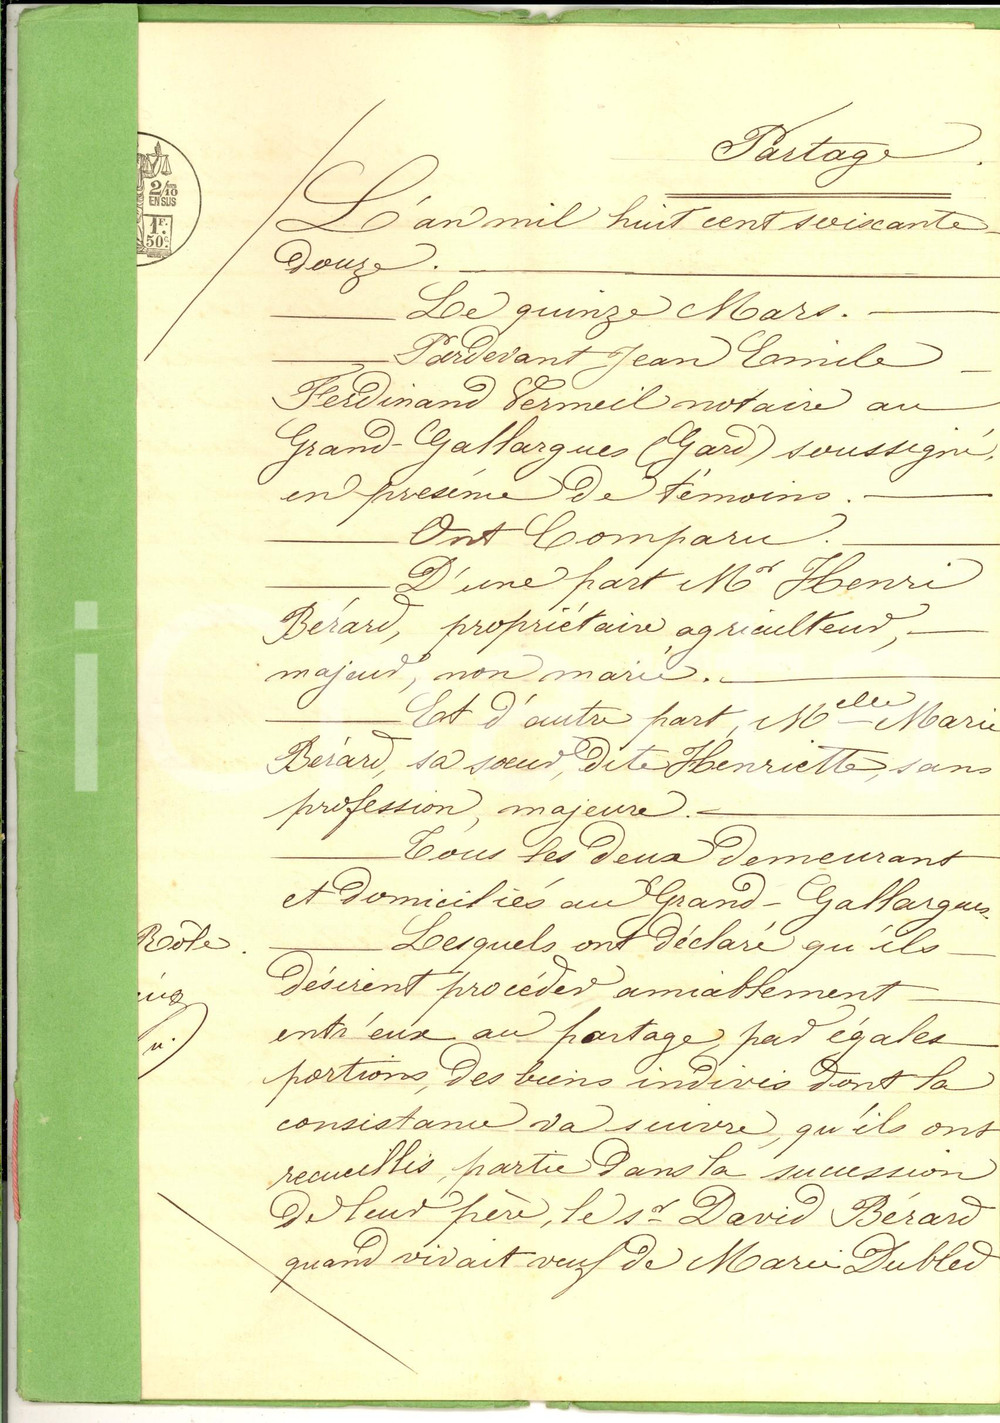 Partage.
L'an mil huit cent soixante-
douze.
Le quinze Mars.
Pardevant Jean Emile
Ferdinand Vermeil notaire au
Grand-Gallargues (Gard) soussigné,
en présence de témoins.
Ont Comparu.
D'une part Mr Henri
Bérard, propriétaire agriculteur,
majeur, non marié.
Et d'autre part, Melle Marie
Bérard, sa sœur, dite Henriette, sans
profession, majeure.
Tous les deux demeurant
et domiciliés au Grand-Gallargues.
Lesquels ont déclaré qu'ils
désirent procéder amiablement
entr'eux au partage, par égales
portions, des biens indivis dont la
consistance va suivre, qu'ils ont
recueillis, partie dans la succession
de leur père, le sr David Bérard
quand vivait veuf de Marie Dubled
Role.
2/10
EN SUS
1F.
50c.